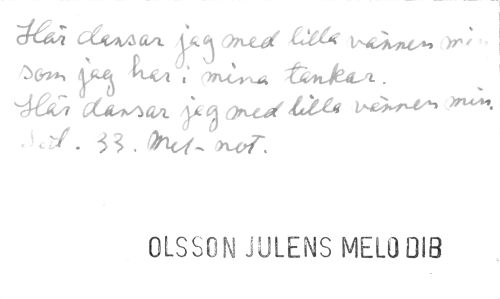 Här dansar jag med lilla vännen min
som jag har i mina tankar.
Här dansar jag med lilla vännen min.
Sid. 33. Mel-not.
OLSSON JULENS MELODIB